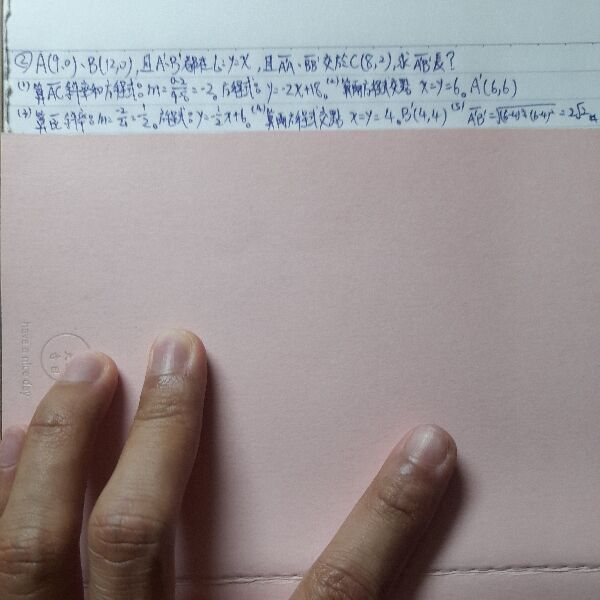 ② A(9,0)、B(12,0),且A'、B'都在L:y=x,且AA'、BB'交於C(8,2),求A'B'長?
(1) 算AC斜率和方程式:m=0-2/9-8=-2。方程式:y=-2x+18。(2) 算兩方程式交點 x=y=6。A'(6,6)
(3) 算BC斜率:m= =-1/2。方程式:y=-1/2x+6。(4) 算兩方程式交點 x=y=4。B'(4,4) (5) A'B'=√(6-4)²+(6-4)²=2√2
have a nice day